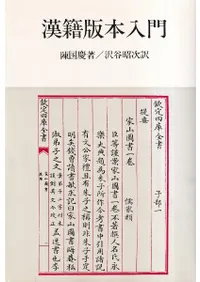 漢籍版本入門
陳国慶著/沢谷昭次訳
欽定四庫全書
子部一
家山圖書
儒家類
提要
臣等謹案家山圖書一卷不著撰人名氏永
樂大典題為朱子所作今考書中引用諸說
有文公家禮且有朱子之稱則非朱子手定
明矣錢曾讀書敏求記曰家山圖書晦菴私
淑弟子之文
蓋逸書也李
欽定四庫全書